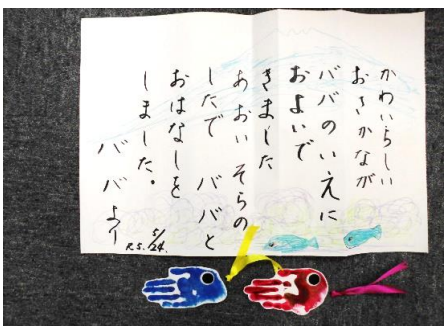 かわいらしい
おさかなが
ババのいえに
およいで
きました
あおい そらの
したで ババと
おはなしを
しました。
ババより
5/24.
R.S.